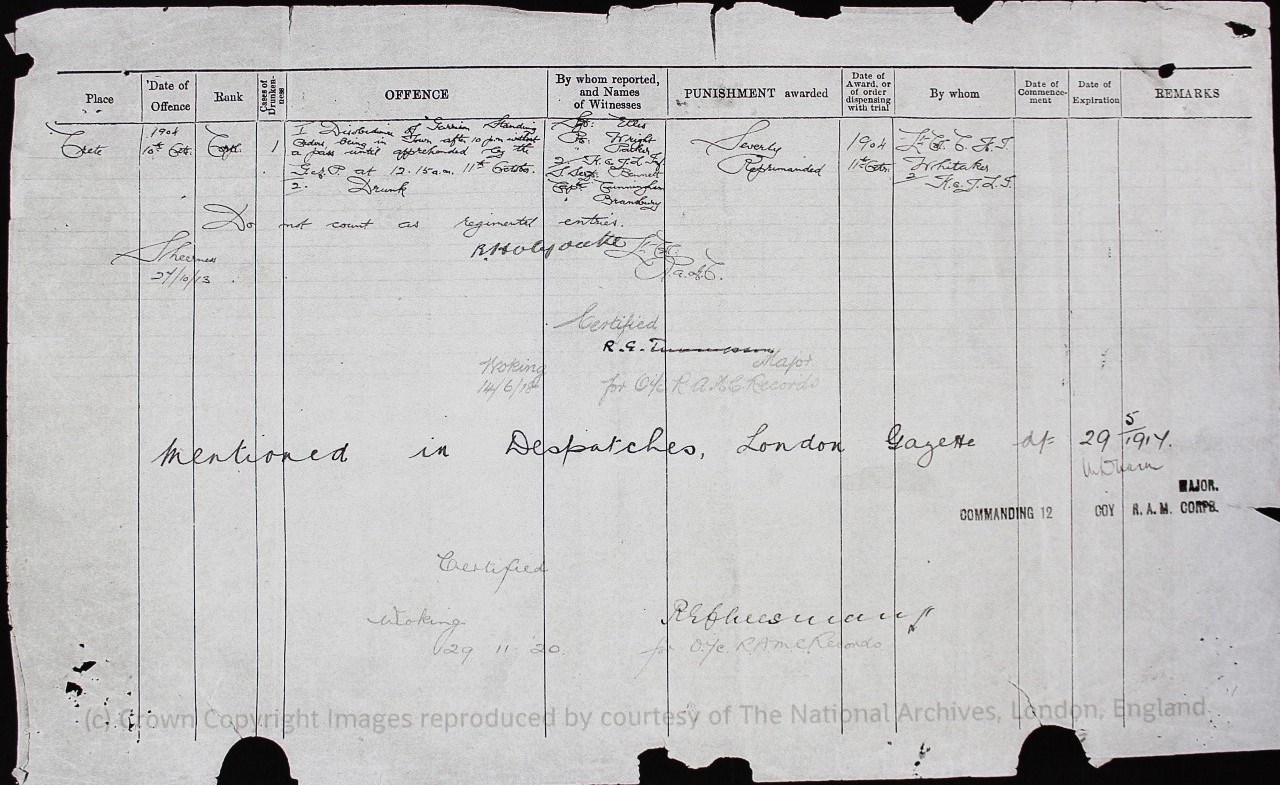 Place
Date of Offence
Rank
Cases of Drunken-ness
OFFENCE
By whom reported, and Names of Witnesses
PUNISHMENT awarded
Date of Award, or of order dispensing with trial
By whom
Date of Commence-ment
Date of Expiration
REMARKS
Crete
1904
10th Octr.
Corpl.
1
1 Disobedience of Garrison Standing
Orders, being in Town after 10 p.m. without
a pass until apprehended by the
at 12.15 a.m. 11th October.
2. Drunk
Ellis
Wright
Parker
Bennett
Cunningham
Severely
Reprimanded
1904
11th Octr.
Whitaker
Do not count as regimental entries.
R Holyoake
Sheerness
27/10/13
Certified
R. G. Thompson
Major
Woking
14/6/18
for O/c R A M C Records
Mentioned in Despatches, London Gazette dt 29/5/1917.
MAJOR.
COMMANDING 12 COY R. A. M. CORPS.
Certified
R E Cheesman
Woking
29 11 20.
for O/c R A M C Records
(c) Crown Copyright Images reproduced by courtesy of The National Archives, London, England.